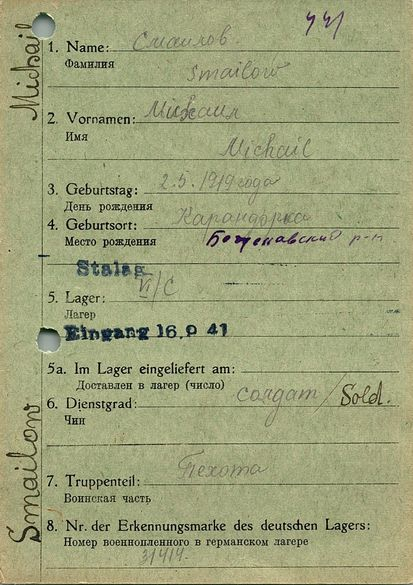 441
1. Name: Смаилов
Фамилия
Smailow
2. Vornamen: Михаил
Имя
Michail
3. Geburtstag: 2.5.1919 года
День рождения
4. Geburtsort: Карандорка
Место рождения
р-н
Stalag
VI/C
5. Lager:
Лагер
Eingang 16. 9 41
5a. Im Lager eingeliefert am:
Доставлен в лагер (число)
6. Dienstgrad: солдат / Sold.
Чин
7. Truppenteil: Пехота
Воинская часть
8. Nr. der Erkennungsmarke des deutschen Lagers:
Номер военнопленного в германском лагере
31414.
Smailow Michail